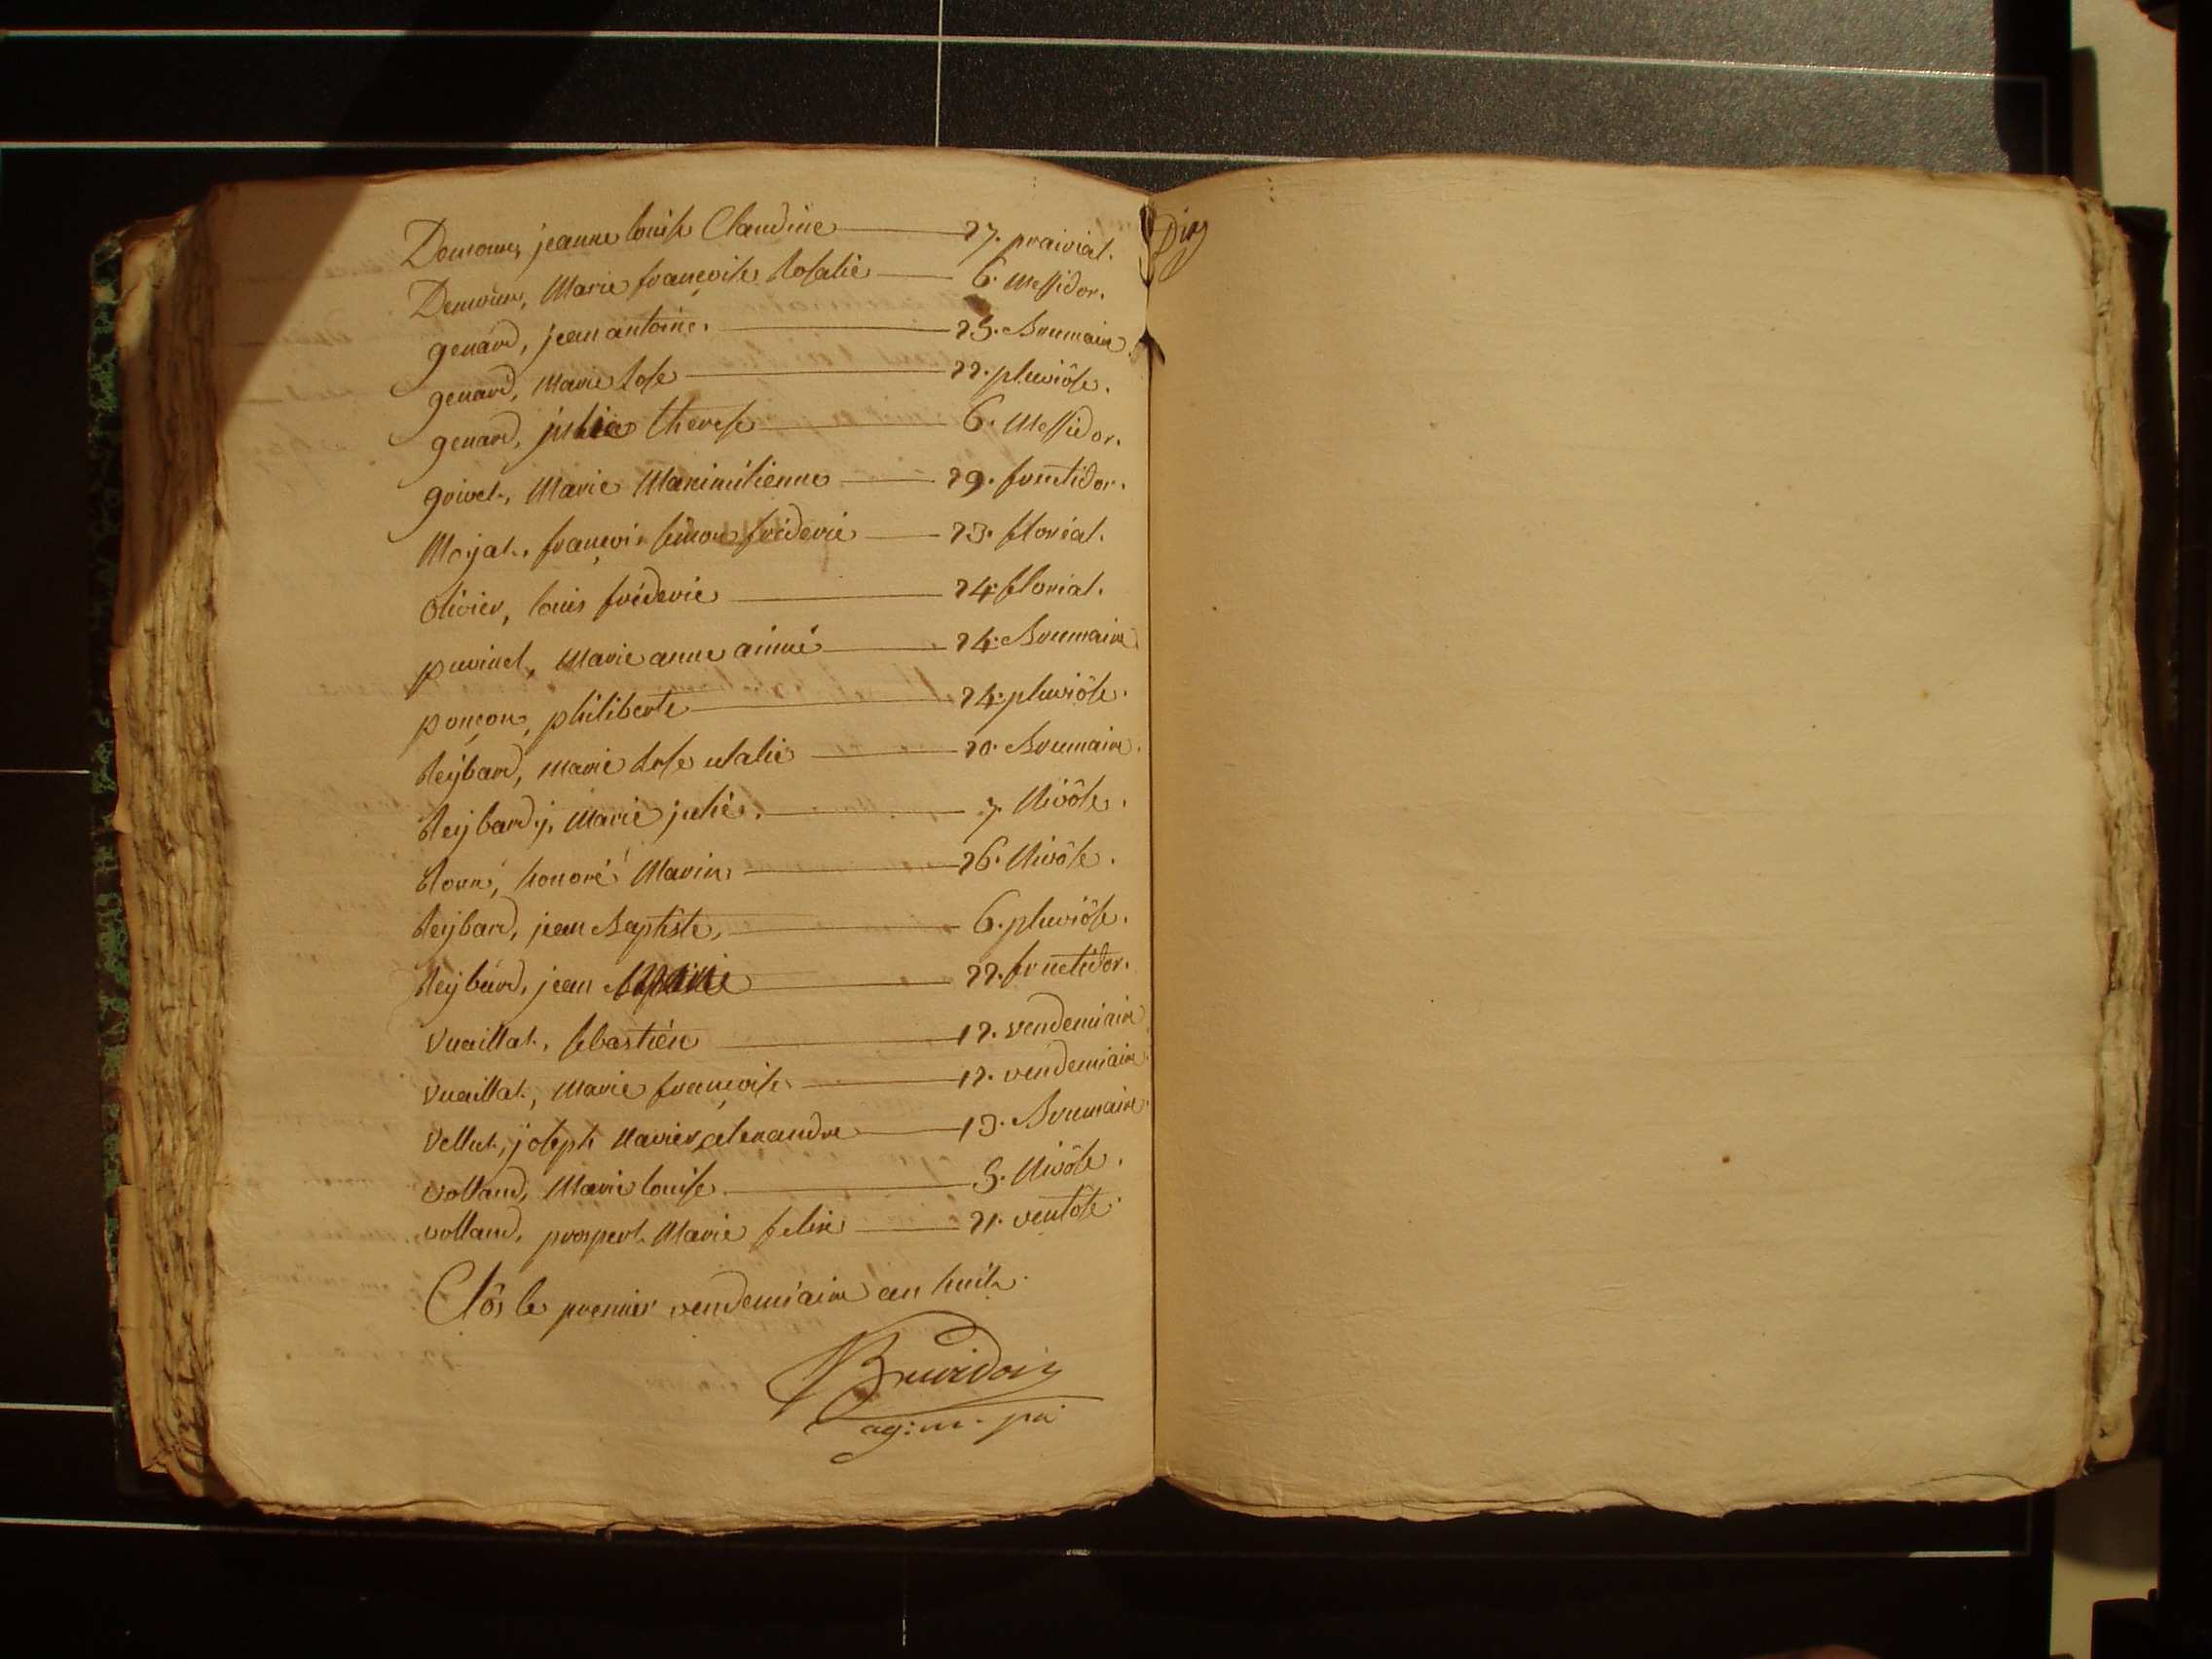 Demoune, jeanne louise Claudine — 27. prairial.
Demoune, Marie françoise Rosalie — 6. Messidor.
genard, jean antoine. — 25. Brumaire.
genard, Marie Rose — 22. pluviôse.
genard, julie therese — 6. Messidor.
grivet, Marie Maximilienne — 29. fructidor.
Mojat, françois simon fréderic — 23. floréal.
Olivier, louis fréderic — 24. floréal.
puvinel, Marie anne aimée — 24. Brumaire
ponçon, philiberte — 24. pluviôse.
Reÿbard, marie Rose ulalie — 20. Brumaire.
Reÿbard, Marie julie. — 7. Nivôse.
honoré Marin — 26. Nivôse.
Reÿbard, jean Baptiste, — 6. pluviôse.
Reÿbard, jean — 22. fructidor.
Vuaillat, sebastien — 12. vendemiaire
Vuaillat, Marie françoise — 12. vendemiaire
Vellut, joseph Xavier alexandre — 13. Brumaire
Volland, Marie louise. — 5. Nivôse.
volland, prospert Marie felix — 21. ventôse.
Clôs le premier vendemiaire an huit.
ag: m. pal